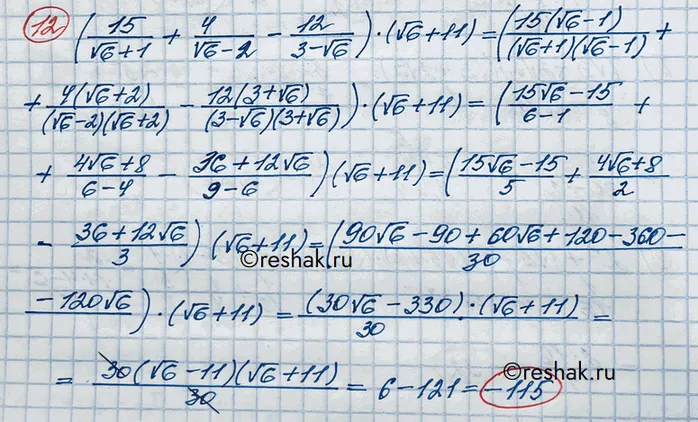 12 (15/(√6+1) + 4/(√6-2) - 12/(3-√6)) · (√6+11) = (15(√6-1)/((√6+1)(√6-1)) +
+ 4(√6+2)/((√6-2)(√6+2)) - 12(3+√6)/((3-√6)(3+√6))) · (√6+11) = ((15√6-15)/(6-1) +
+ (4√6+8)/(6-4) - (36+12√6)/(9-6)) (√6+11) = ((15√6-15)/5 + (4√6+8)/2
- (36+12√6)/3) (√6+11) = (90√6-90+60√6+120-360-/30
©reshak.ru
-120√6) · (√6+11) = (30√6-330)·(√6+11)/30 =
= 30(√6-11)(√6+11)/30 = 6-121 = -115
©reshak.ru